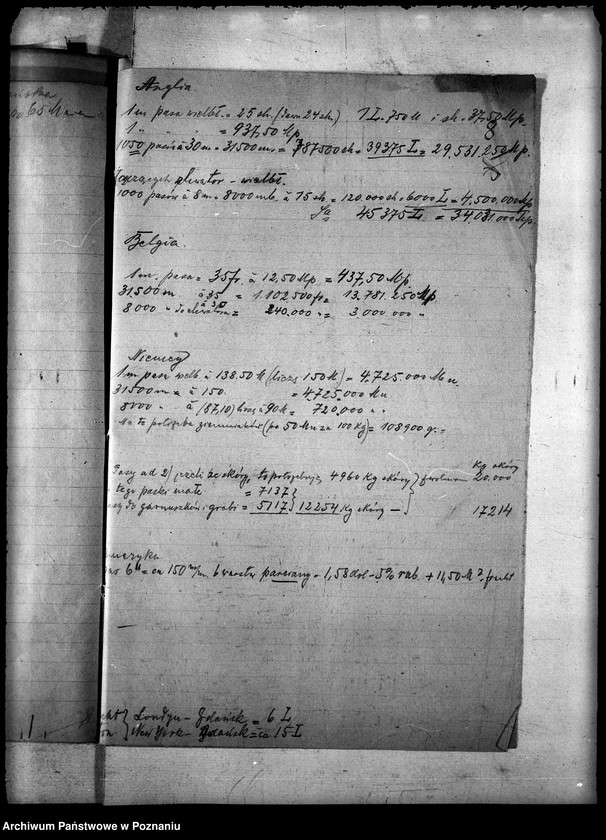 Anglia
1 m pasa welbł. = 25 sh. (dawn 24 sh.) 1 £. 750 M i sh. = 37,50 Mp.
8
1 " " = 937,50 Mp
1050 pasów à 30 m = 31500 m = 787500 sh = 39375 £ = 29,531,250 Mp.
elevator - welbł.
1000 pasów à 8 m = 8000 mb. à 15 sh. = 120.000 sh = 6000 £ = 4,500,000 Mp
Sa 45375 £. = 34,031,000 Mp.
Belgia.
1 m. pasa = 35 fr. à 12,50 Mp = 437,50 Mp
31500 m à 35 = 1.102,500 fr = 13.781.250 Mp
8000 " do elevatorów à 30 = 240.000 " = 3.000.000 "
Niemcy
1 m pasa welb à 138.50 M (licząc 150 M) = 4.725.000 M n.
31500 m = à 150. = 4.725.000 M n.
8000 " à (87,10) licząc à 90 M = 720.000 " "
na to potrzeba ziemniaków (po 50 M za 100 Kg) = 108900 q. =
Pasy ad 2) jeżeli ze skóry, to potrzebuję 4960 Kg skóry
Kg skóry
20.000
tego paski małe = 7137
do garnuszków i grabi = 5117 12254 Kg skóry — 17214
6" = ca 150 m/m. 6 warstw parciany = 1,58 dol - 5% rab. + 1,50 M fracht
Londyn - Gdańsk = 6 £
New York - Gdańsk = ca 15 £
Archiwum Państwowe w Poznaniu